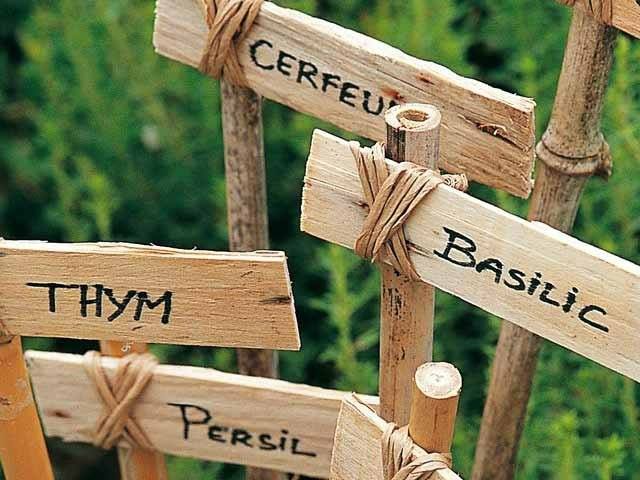 CERFEU
BASILIC
THYM
PERSIL